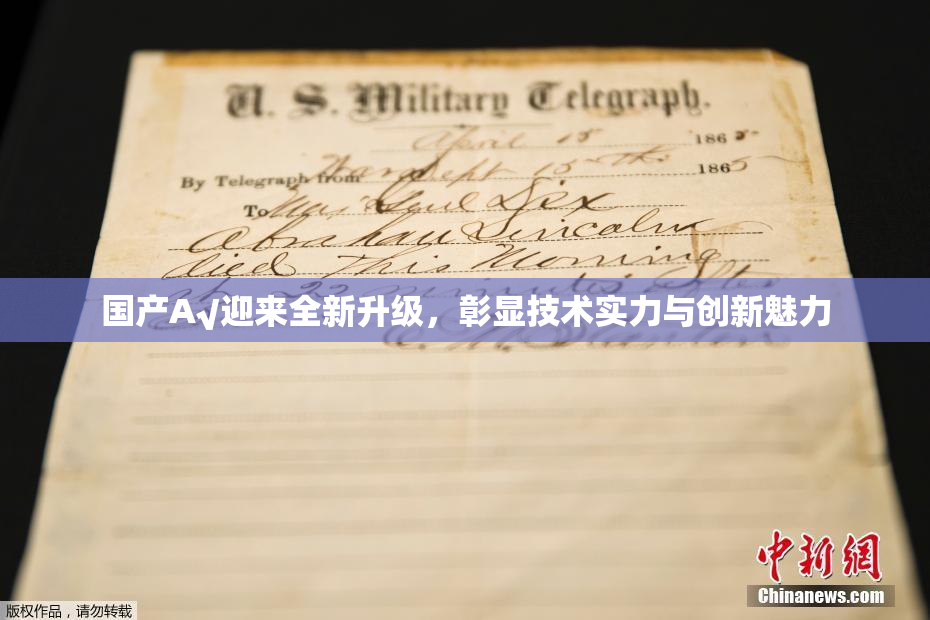 U. S. Military Telegraph.
April 15 1865
By Telegraph from War Dept 15th 1865
To Maj Genl Dix
Abraham Lincoln
died This Morning
at 22 minutes after
国产A√迎来全新升级，彰显技术实力与创新魅力
E. M. Stanton
中新网
Chinanews.com
版权作品，请勿转载